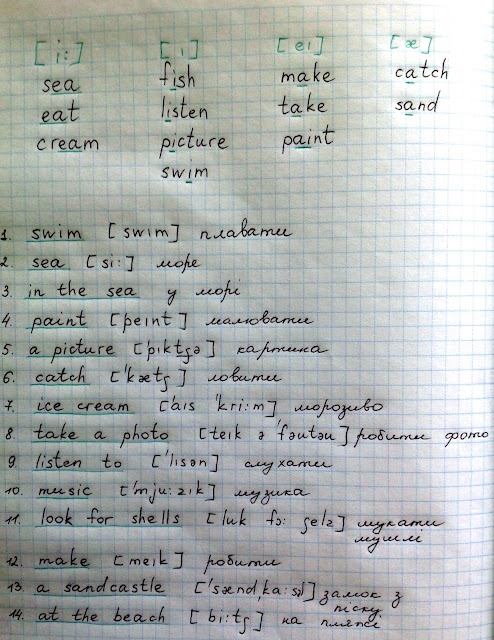 [i:] [ɪ] [eɪ] [æ]
sea fish make catch
eat listen take sand
cream picture paint
swim
1. swim [swɪm] плавати
2. sea [si:] море
3. in the sea у морі
4. paint [peɪnt] малювати
5. a picture ['pɪktʃə] картина
6. catch ['kætʃ] ловити
7. ice cream ['aɪs 'kri:m] морозиво
8. take a photo [teɪk ə 'fəutəu] робити фото
9. listen to ['lɪsən] слухати
10. music ['mju:zɪk] музика
11. look for shells [luk fɔ: ʃelz] шукати
мушлі
12. make [meɪk] робити
13. a sandcastle ['sændka:sl] замок з
піску
14. at the beach [bi:tʃ] на пляжі